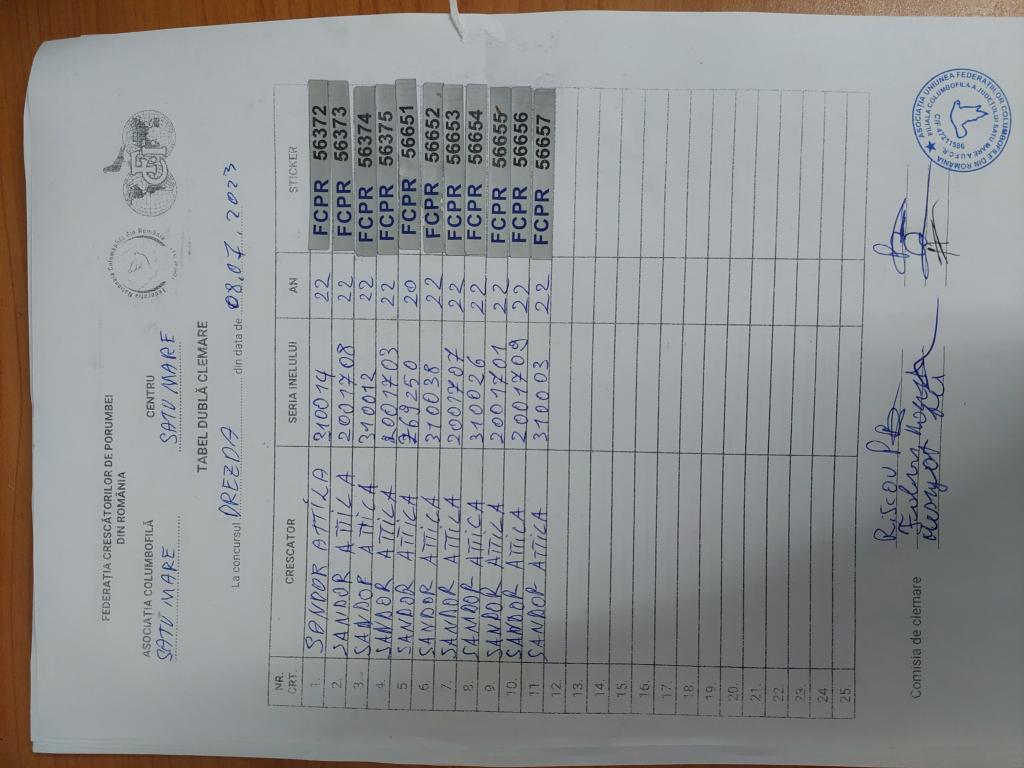 FEDERAȚIA CRESCĂTORILOR DE PORUMBEI
DIN ROMÂNIA
Federația Națională Columbofilă din România
FCI
ASOCIAȚIA COLUMBOFILĂ
SATU MARE
CENTRU
SATU MARE
TABEL DUBLĂ CLEMARE
La concursul DREZDA din data de 08.07.2023
NR. CRT. CRESCĂTOR SERIA INELULUI AN STICKER
1. SANDOR ATILA 310014 22 FCPR 56372
2. SANDOR ATTILA 2001708 22 FCPR 56373
3. SANDOR ATTICA 310012 22 FCPR 56374
4. SANDOR ATTICA 2001703 22 FCPR 56375
5. SANDOR ATTICA 769250 20 FCPR 56651
6. SANDOR ATTICA 310038 22 FCPR 56652
7. SANDOR ATTICA 2001707 22 FCPR 56653
8. SANDOR ATTICA 310026 22 FCPR 56654
9. SANDOR ATTICA 2001701 22 FCPR 56655
10. SANDOR ATTICA 2001709 22 FCPR 56656
11. SANDOR ATTICA 310003 22 FCPR 56657
12.
13.
14.
15.
16.
17.
18.
19.
20.
21.
22.
23.
24.
25.
Comisia de clemare
ASOCIAȚIA UNIUNEA FEDERAȚIILOR COLUMBOFILE DIN ROMÂNIA
FILIALA COLUMBOFILĂ A JUDEȚULUI SATU MARE A U.F.C.R.
CIF: 47211586